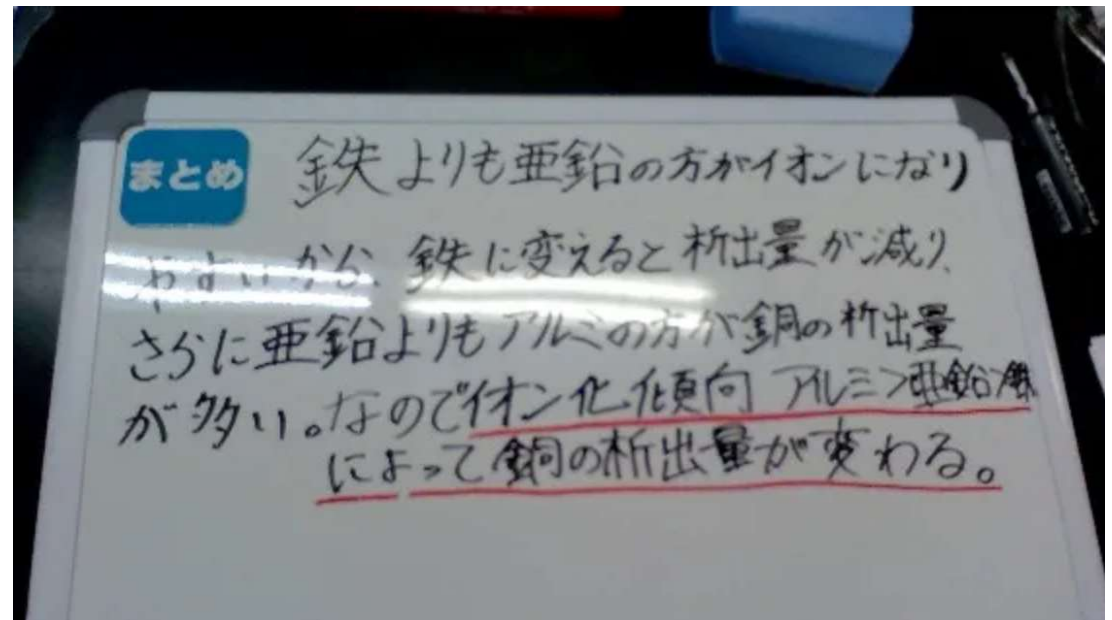 まとめ
鉄よりも亜鉛の方がイオンになり
やすいから、鉄に変えると析出量が減り、
さらに亜鉛よりもアルミの方が銅の析出量
が多い。なのでイオン化傾向 アルミ>亜鉛>鉄
によって銅の析出量が変わる。